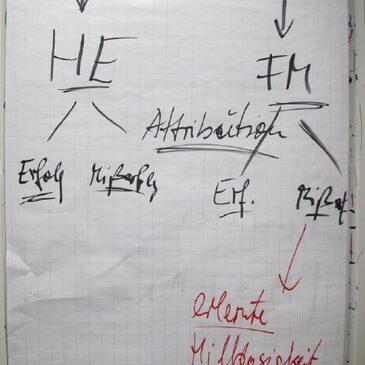 HE
FM
Attribution
Erfolg
Mißerfolg
Erf.
Mißerf.
erlernte
Hilflosigkeit